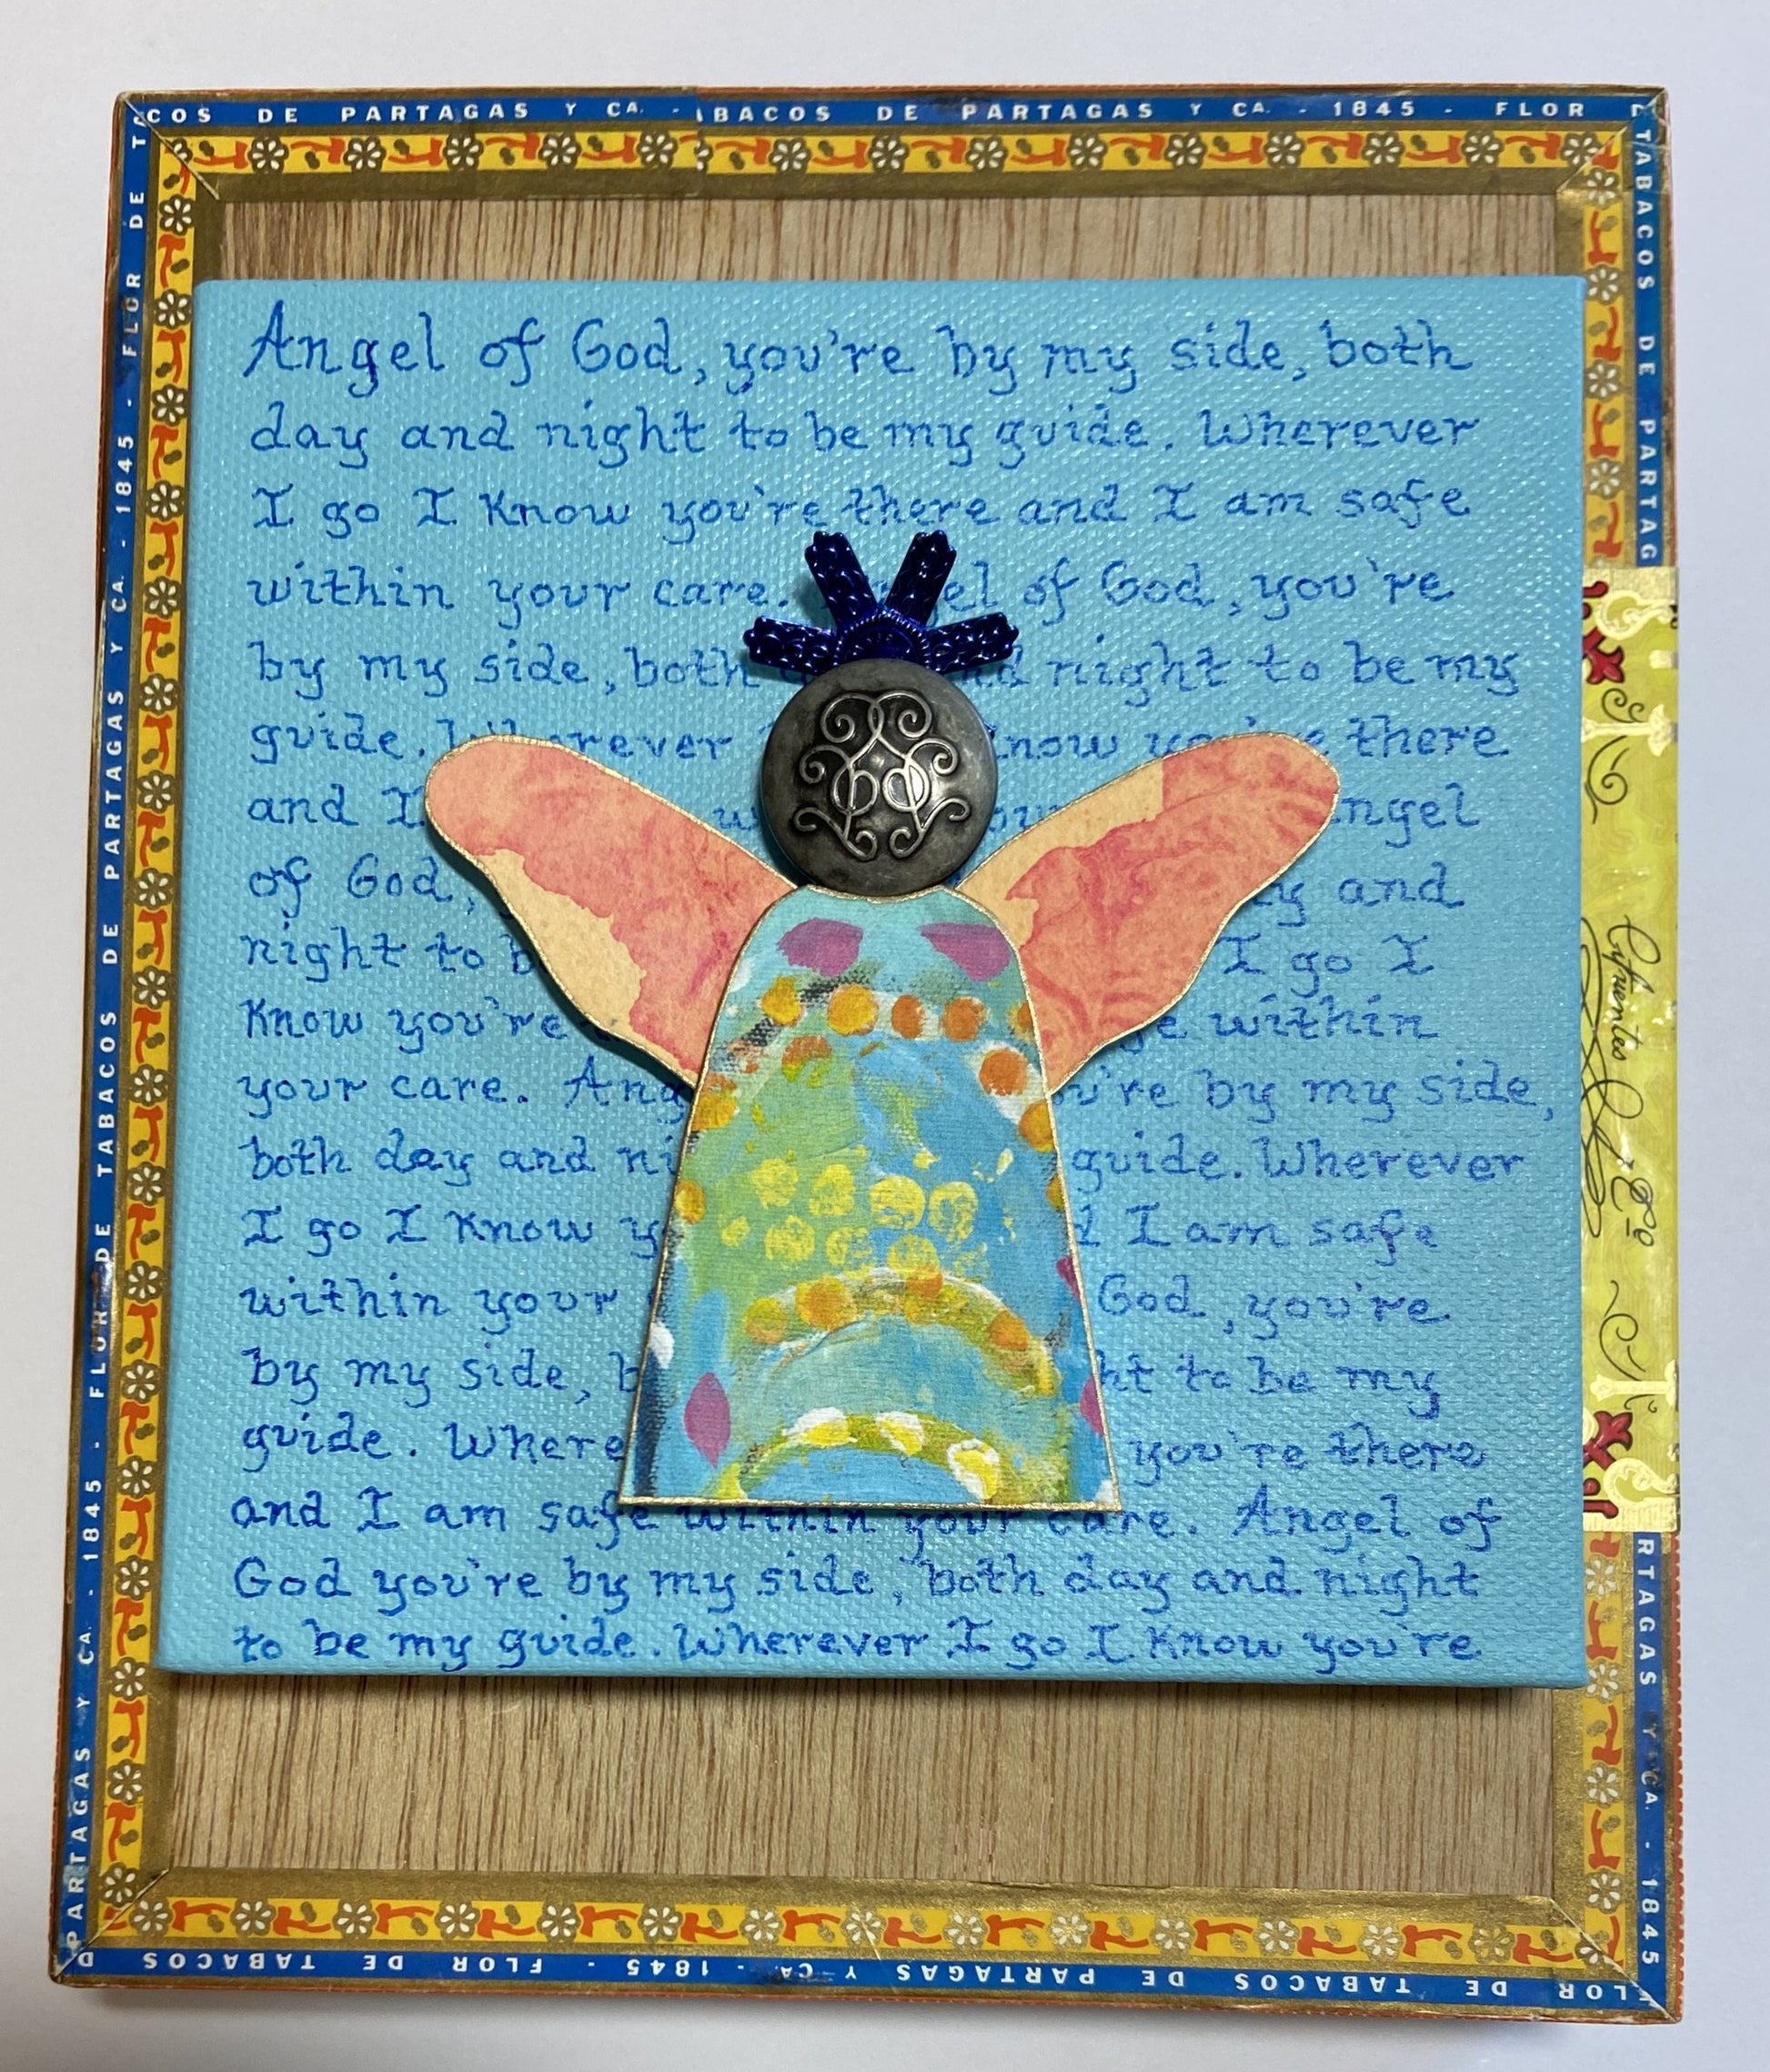 COS DE PARTAGAS Y CA. - BACOS DE PARTAGAS Y CA. - 1845 - FLOR D
TABACOS DE PARTAG
RTAGAS Y CA. - 1845
FLOR DE TABACOS DE PARTAGAS Y CA. - 1845 - FLOR DE TABACOS D
PARTAGAS Y CA. - 1845 - FLOR DE TABACOS DE PARTAGAS Y CA. - 1845 - FLOR DE T
Angel of God, you're by my side, both
day and night to be my guide. Wherever
I go I know you're there and I am safe
within your care. el of God, you're
by my side, both d night to be my
guide. Wherever know you're there
and I w ngel
of God, y and
night to b I go I
know you're e within
your care. Ang u're by my side,
both day and ni guide. Wherever
I go I know y d I am safe
within your God, you're
by my side, b ht to be my
guide. Where you're there
and I am safe within your care. Angel of
God you're by my side, both day and night
to be my guide. Wherever I go I know you're
Cifuentes y Cº